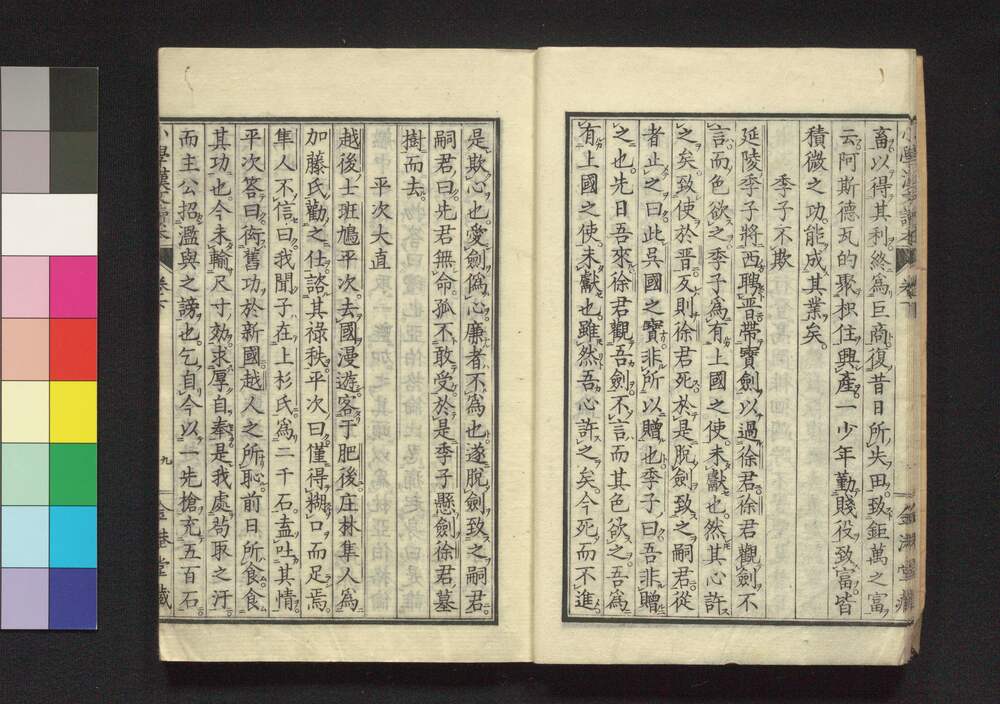 畜以得其利終爲巨商復昔日所失田致鉅萬之富
云阿斯德瓦的聚枳住興產一少年勤賤役致富皆
積微之功能成其業矣
季子不欺
延陵季子將西聘晋帶寶劍以過徐君徐君觀劍不
言而色欲之季子爲有上國之使未獻也然其心許
之矣致使於晋反則徐君死於是脫劍致之嗣君從
者止之曰此吳國之寶非所以贈也季子曰吾非贈
之也先日吾來徐君觀吾劍不言而其色欲之吾爲
有上國之使未獻也雖然吾心許之矣今死而不進
是欺心也愛劍僞心廉者不爲也遂脫劍致之嗣君
嗣君曰先君無命孤不敢受於是季子懸劍徐君墓
樹而去
平次大直
越後士班鳩平次去國漫遊客于肥後庄林隼人爲
加藤氏勸之仕諮其祿秩平次曰僅得糊口而足焉
隼人不信曰我聞子在上杉氏爲二千石盍吐其情
平次答曰衒舊功於新國越人之所恥前日所食食
其功也今未輸尺寸効求厚自奉是我處苟取之汙
而主公招濫與之謗也乞自今以一先槍充五百石
小學漢文讀本 卷下 九 金港堂藏